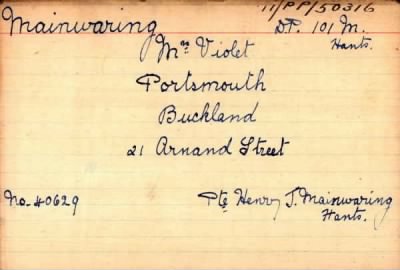 11/PP/50316
Mainwaring
DP. 101 M.
Hants.
Mrs Violet
Portsmouth
Buckland
21 Arnand Street
No. 40629
Pte Henry J. Mainwaring
Hants.